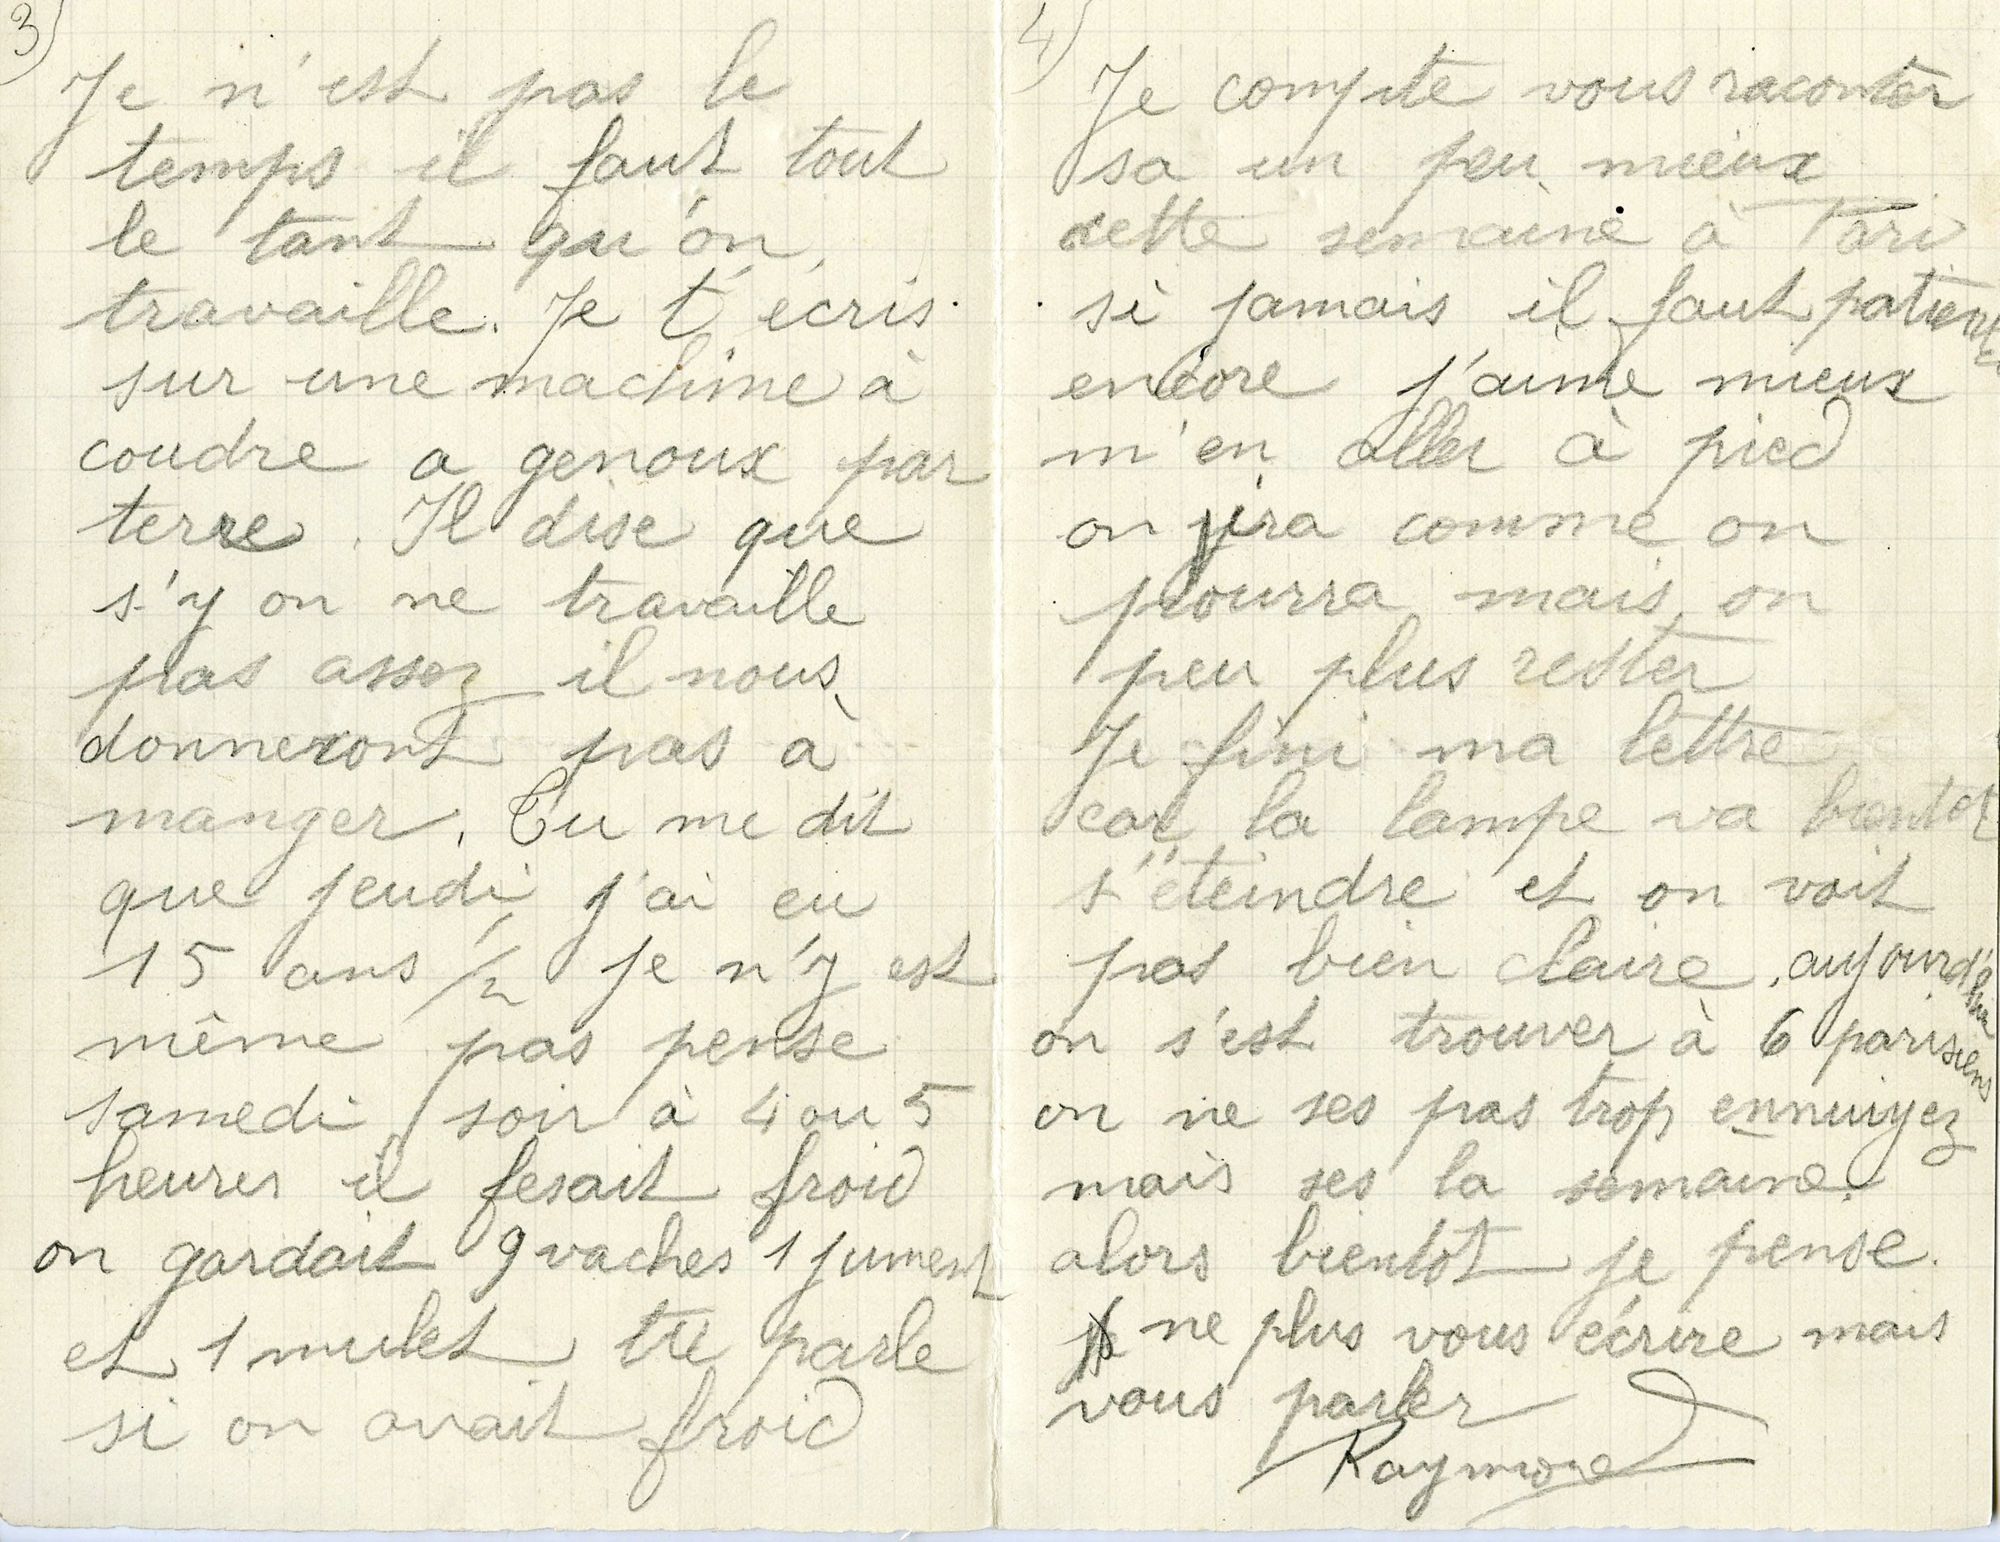 3)
Je n'est pas le
temps il faut tout
le tant qu'on
travaille. Je t'écris
sur une machine à
coudre a genoux par
terre. Il dise que
s'y on ne travaille
pas assez il nous
donneront pas à
manger. Tu me dit
que jeudi j'ai eu
15 ans 1/2 je n'y est
même pas pense
samedi soir à 4 ou 5
heures il fesait froid
on gardait 9 vaches 1 jument
et 1 mulet tu parle
si on avait froid
4)
Je compte vous raconter
sa un peu mieux
cette semaine à Pari
si jamais il faut patienter
encore j'aime mieux
m'en aller à pied
on ira comme on
pourra mais on
peu plus rester
Je fini ma lettre
car la lampe va bientot
s'éteindre et on voit
pas bien claire. aujourd'hui
on s'est trouver à 6 parisiens
on ne ses pas trop ennuiyez
mais ses la semaine.
alors bientôt je pense.
ne plus vous écrire mais
vous parler
Raymond